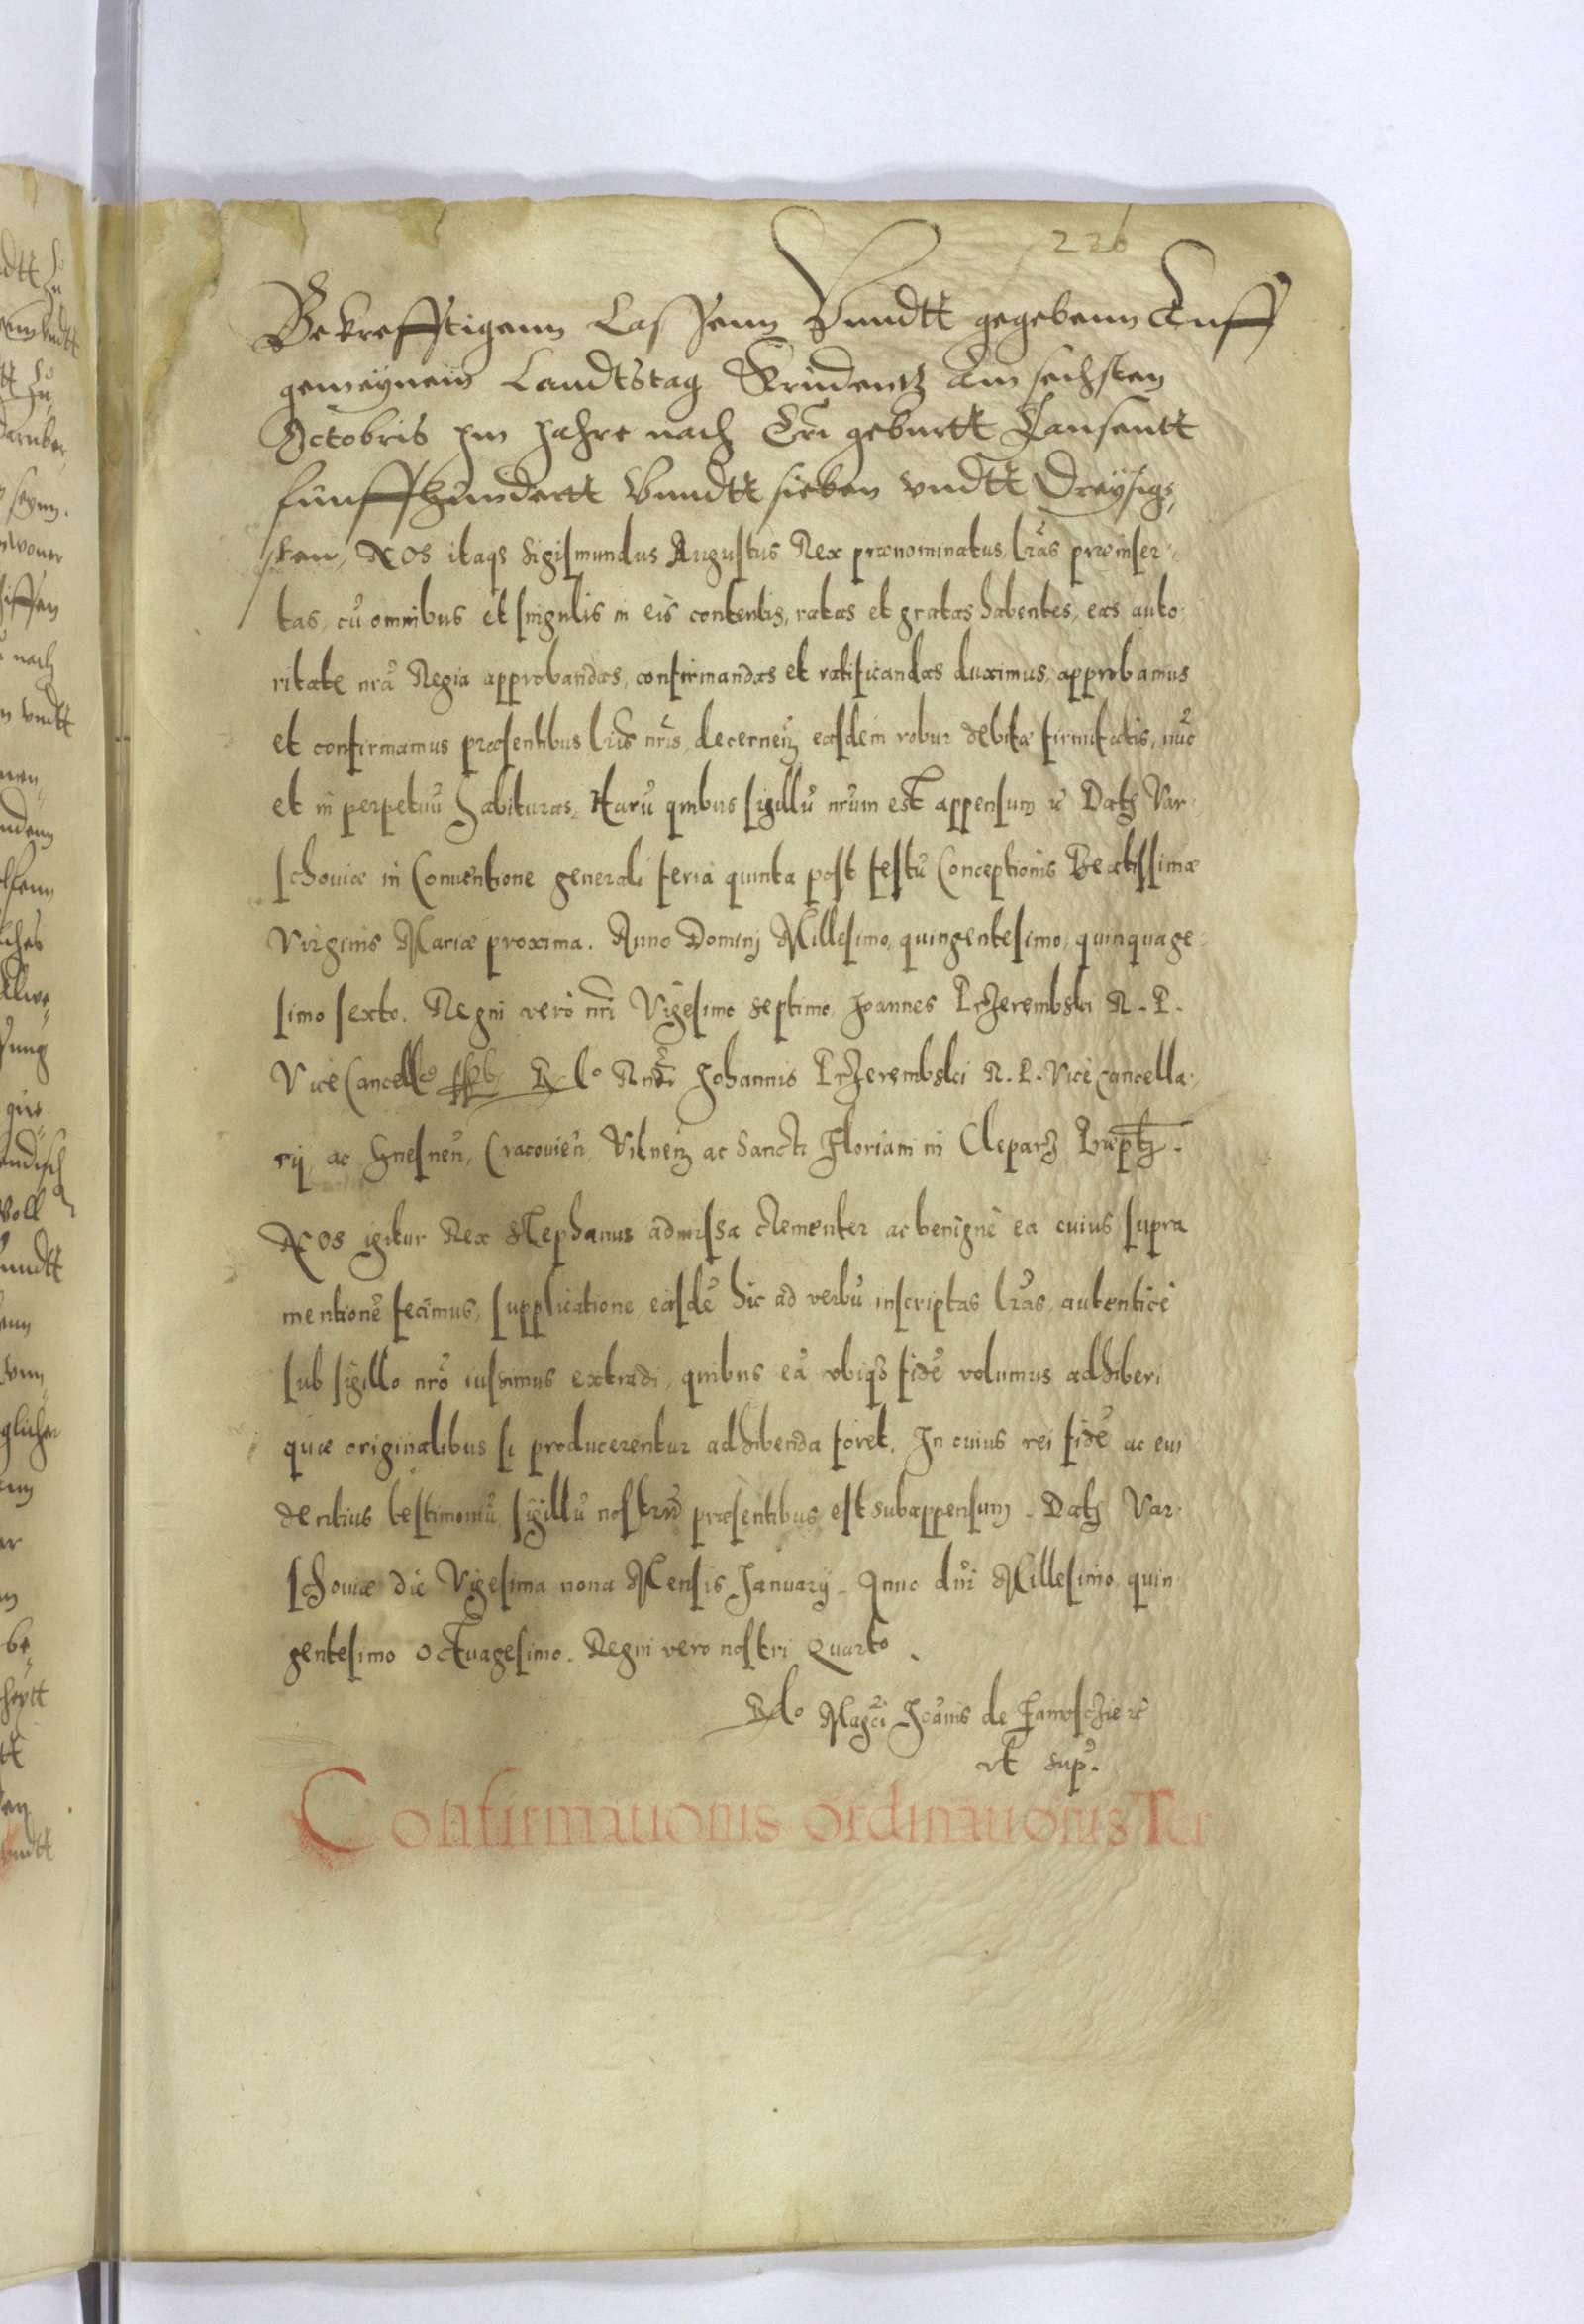 226
Bekrefftigenn Lassenn Vnndtt gegebenn Auff
gemeÿnem Landtstag Grudentz Am sechsten
Octobris Im Jahre nach Cri geburtt Tausentt
funffhundertt Vnndtt sieben vndtt Dreÿsigs,
ten, NOs itaqз Sigismundus Augustus Rex prænominatus, lras præinser-
tas, cū omnibus et singulis in eis contentis, ratas et gratas habentes, eas auto-
ritate nrā Regia approbandas, confirmandas et ratificandas duximus, approbamus
et confirmamus præsentibus lris nris, decernen easdem robur debitæ firmitatis, nūc
et in perpetuū habituras, Harū quibus sigillū nrum est appensum &c Datз Var-
schouiæ in Conuentione generali feria quinta post festū Conceptionis Beatissimæ
Virginis Mariæ proxima. Anno Dominj Millesimo, quingentesimo, quinquage-
simo sexto. Regni verò nri Vigesimo septimo, Joannes Przerembski R. P.
ViceCancellꝰ sspt Rlo Rndi Johannis Przerembski R. P. Vicecancella-
rij, ac Gnesneñ, Cracouieñ, Vilneñ ac Sancti Floriani in Cleparz Præptз.
NOs igitur Rex Stephanus admissa clementer ac benignè ea cuius supra
mentionē fecimus, supplicatione, easdē hic ad verbū inscriptas lras, autenticè
sub sigillo nrō iussimus extradi, quibus eā vbiqз fidē volumus adhiberi
quæ originalibus si producerentur adhibenda foret. In cuius rei fidē ac eui
dentius testimoniū sigillū nostrū præsentibus est subappensum. Datз Var-
schouiæ die Vigesima nona Mensis Januarij. Anno dñi Millesimo quin
gentesimo octuagesimo. Regni vero nostri Quarto.
Rlo Magci Joānis de Zamoschie &c
vt sup.
Confirmationis ordinationis Ter